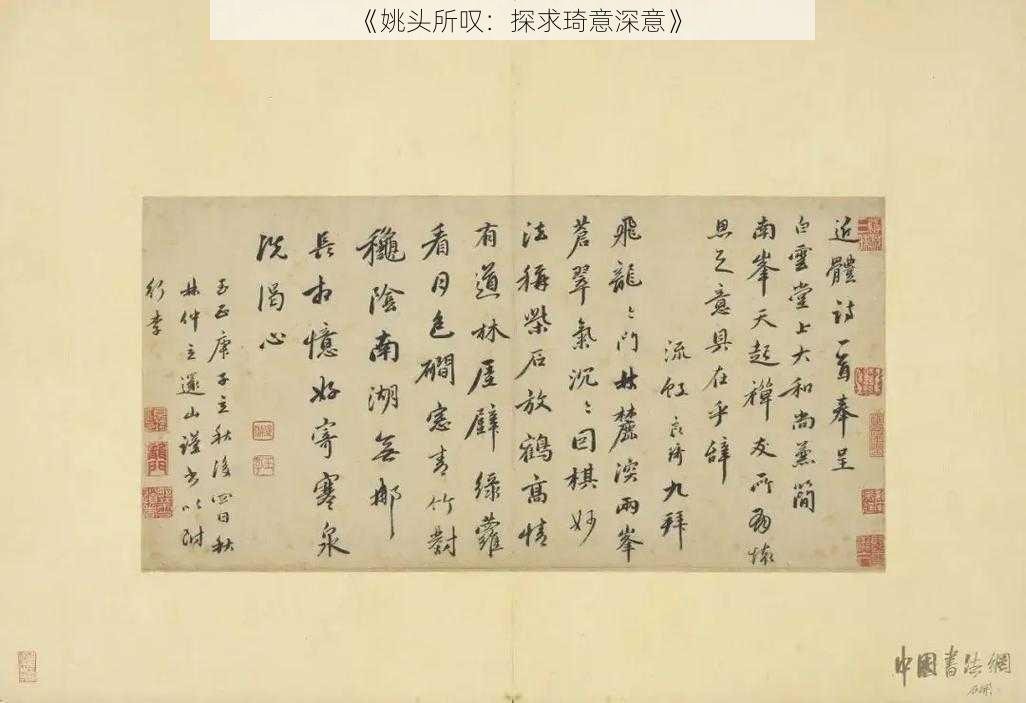 《姚头所叹：探求琦意深意》
近體詩一首奉呈
白雲堂上大和尚兼簡
南峯天起禪友所為懷
思之意具在乎辭
流虹良琦九拜
飛龍〻門林麓深兩峯
蒼翠氣沉〻回棋妙
法稱柴石放鶴高情
有道林屋壁綠蘿
看月色磵窓青竹對
穐陰南湖無
長相憶好寄寒泉
洗渴心
至正庚子立秋後四日秋
林仲立還山謹書以附
行李
龍門
中国書法網